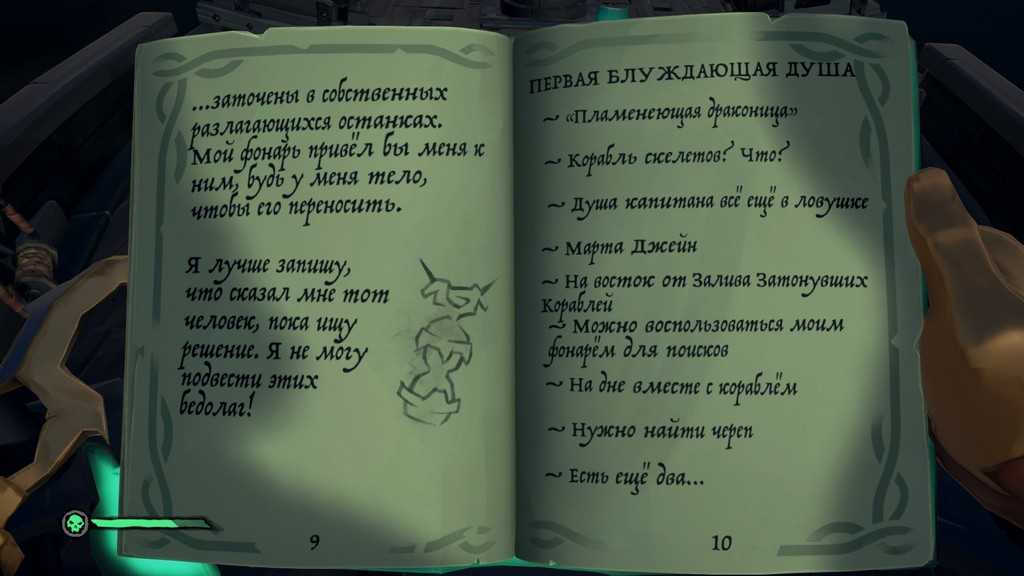 ...заточены в собственных
разлагающихся останках.
Мой фонарь привёл бы меня к
ним, будь у меня тело,
чтобы его переносить.
Я лучше запишу,
что сказал мне тот
человек, пока ищу
решение. Я не могу
подвести этих
бедолаг!
9
ПЕРВАЯ БЛУЖДАЮЩАЯ ДУША
~ «Пламенеющая драконица»
~ Корабль скелетов? Что?
~ Душа капитана всё ещё в ловушке
~ Марта Джейн
~ На восток от Залива Затонувших
Кораблей
~ Можно воспользоваться моим
фонарём для поисков
~ На дне вместе с кораблём
~ Нужно найти череп
~ Есть ещё два...
10